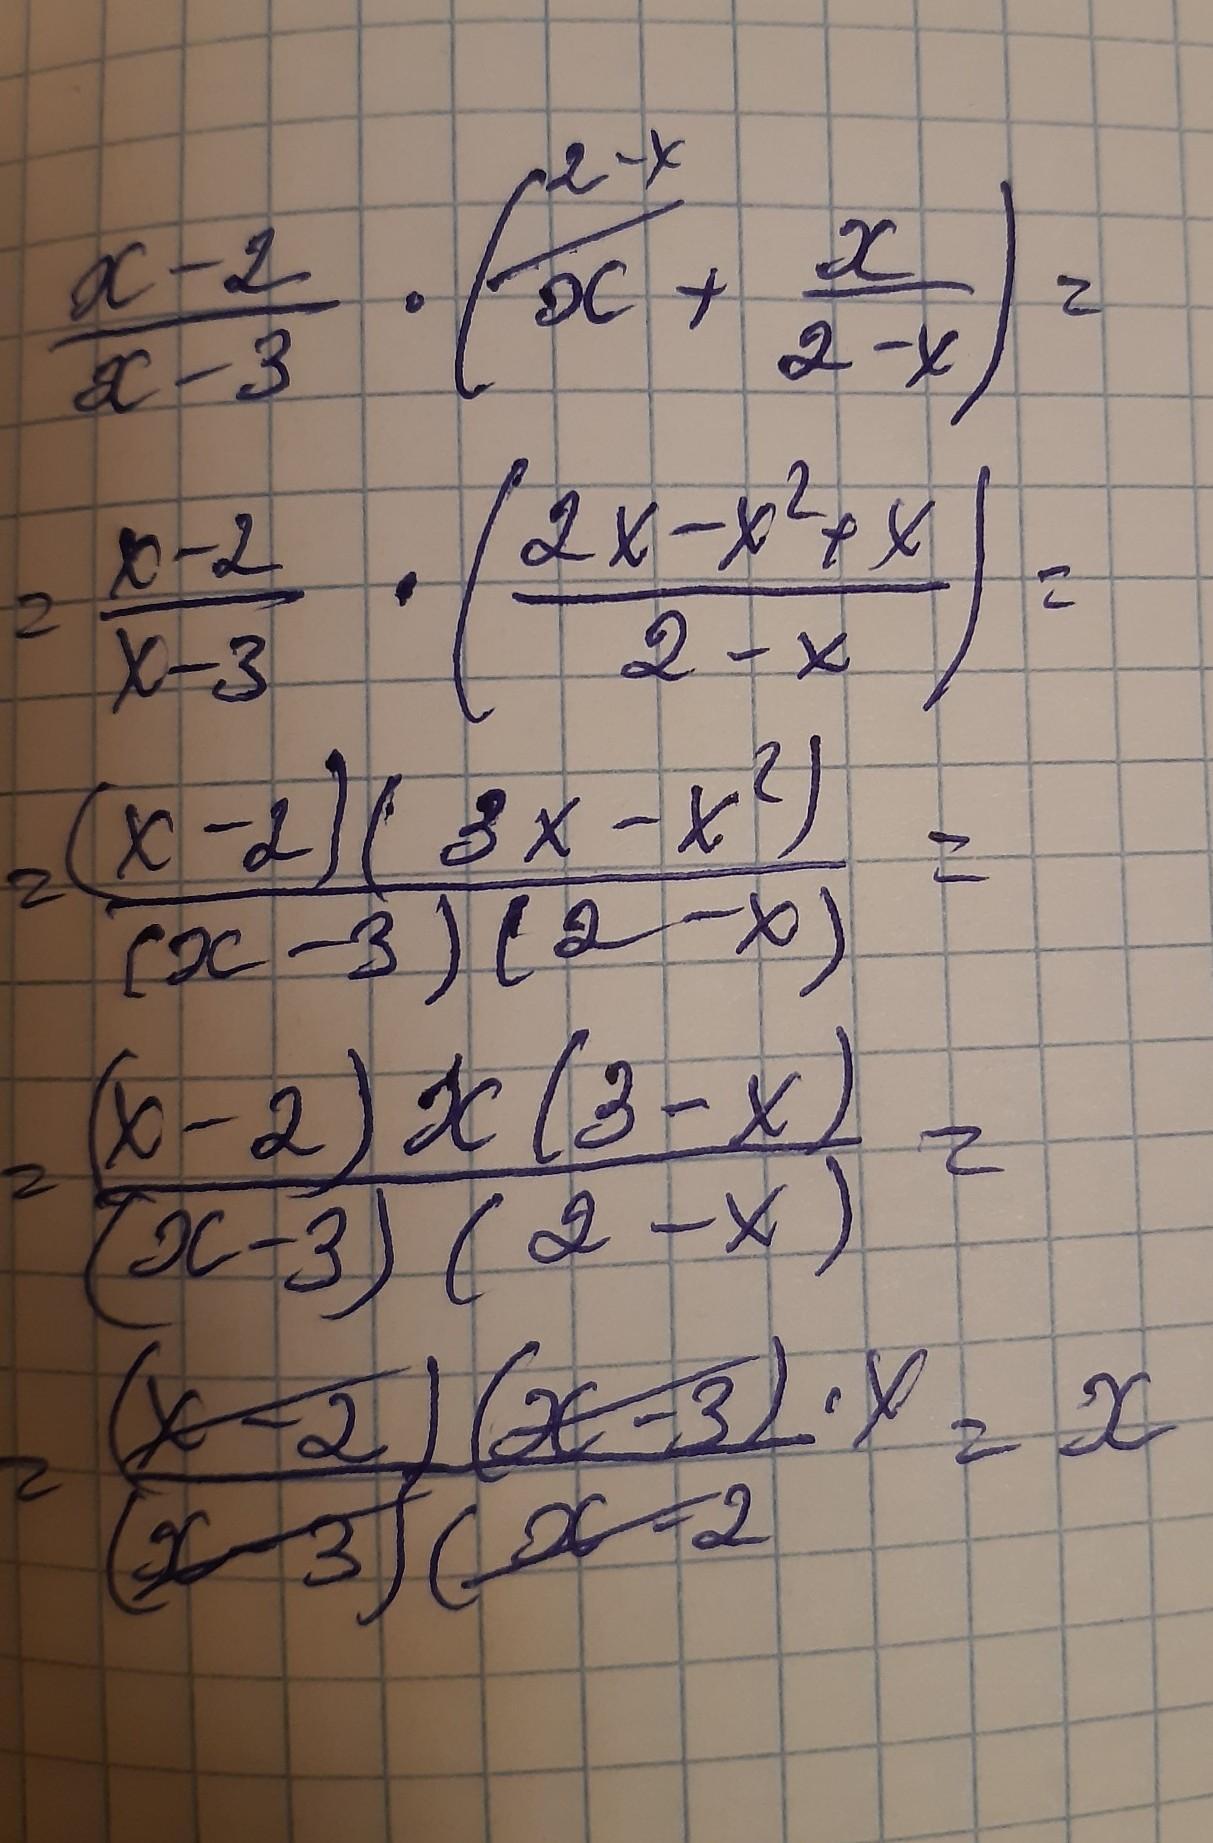 \frac{x-2}{x-3} \cdot \left( \overset{2-x}{x} + \frac{x}{2-x} \right) =
= \frac{x-2}{x-3} \cdot \left( \frac{2x-x^2+x}{2-x} \right) =
= \frac{(x-2)(3x-x^2)}{(x-3)(2-x)} =
= \frac{(x-2)x(3-x)}{(x-3)(2-x)} =
= \frac{(x-2)(x-3) \cdot x}{(x-3)(x-2} = x